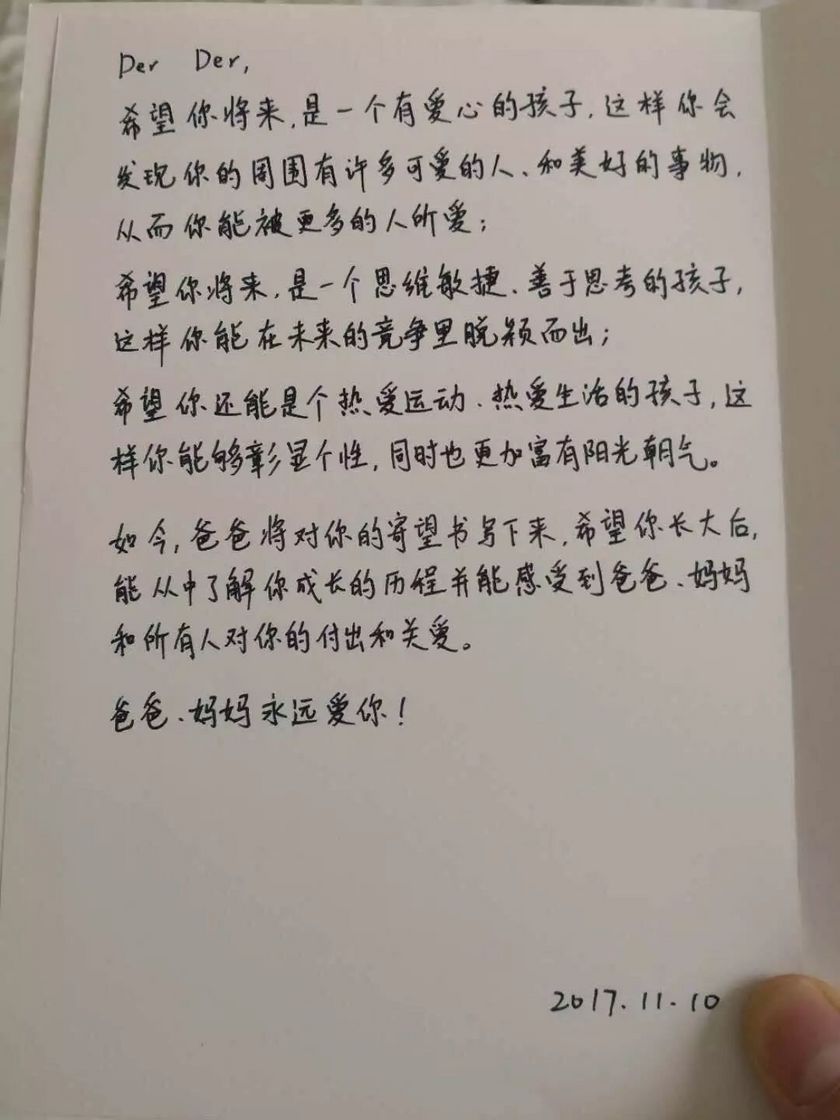 Der Der,
希望你将来,是一个有爱心的孩子,这样你会
发现你的周围有许多可爱的人、和美好的事物,
从而你能被更多的人所爱;
希望你将来,是一个思维敏捷、善于思考的孩子,
这样你能在未来的竞争里脱颖而出;
希望你还能是个热爱运动、热爱生活的孩子,这
样你能够彰显个性,同时也更加富有阳光朝气。
如今,爸爸将对你的寄望书写下来,希望你长大后,
能从中了解你成长的历程并能感受到爸爸、妈妈
和所有人对你的付出和关爱。
爸爸、妈妈永远爱你!
2017.11.10